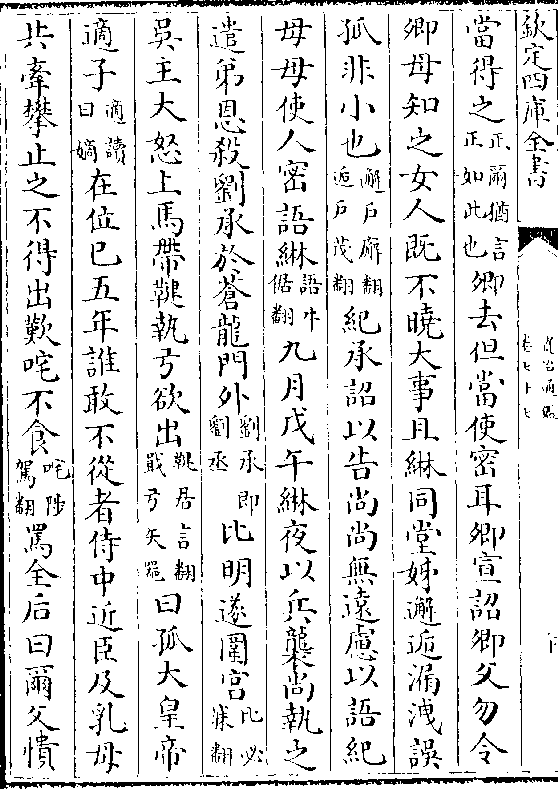 欽定四庫全書
卷七十七
當得之正爾猶言正如此也卿去但當使密耳卿宣詔卿父勿令
卿母知之女人既不曉大事且綝同堂姊邂逅漏洩誤
孤非小也邂戶廨翻逅戶茂翻紀承詔以告尚尚無遠慮以語紀
母母使人密語綝語牛倨翻九月戊午綝夜以兵襲尚執之
遣弟恩殺劉承於蒼龍門外劉承即劉丞比明遂圍宮比必寐翻
吳主大怒上馬帶鞬執弓欲出鞬居言翻戢弓矢器曰孤大皇帝
適子適讀曰嫡在位已五年誰敢不從者侍中近臣及乳母
共牽攀止之不得出歎咤不食咤陟駕翻罵全后曰爾父憒